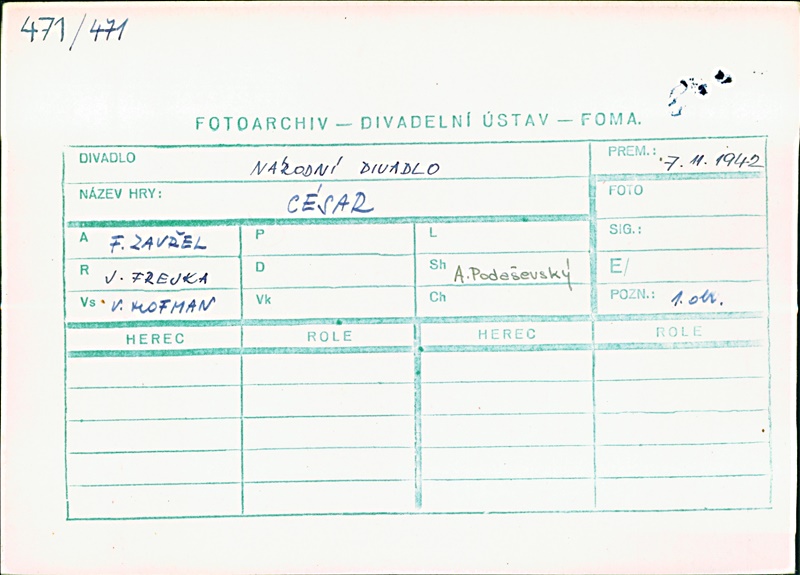 471/471
FOTOARCHIV — DIVADELNÍ ÚSTAV — FOMA.
DIVADLO NÁRODNÍ DIVADLO PREM.: 7.11.1942
NÁZEV HRY: CÉSAR FOTO
A F. ZAVŘEL P L SIG.:
R J. FREJKA D Sh A. Podaševský E/
Vs V. HOFMAN Vk Ch POZN.: 1. obr.
HEREC ROLE HEREC ROLE